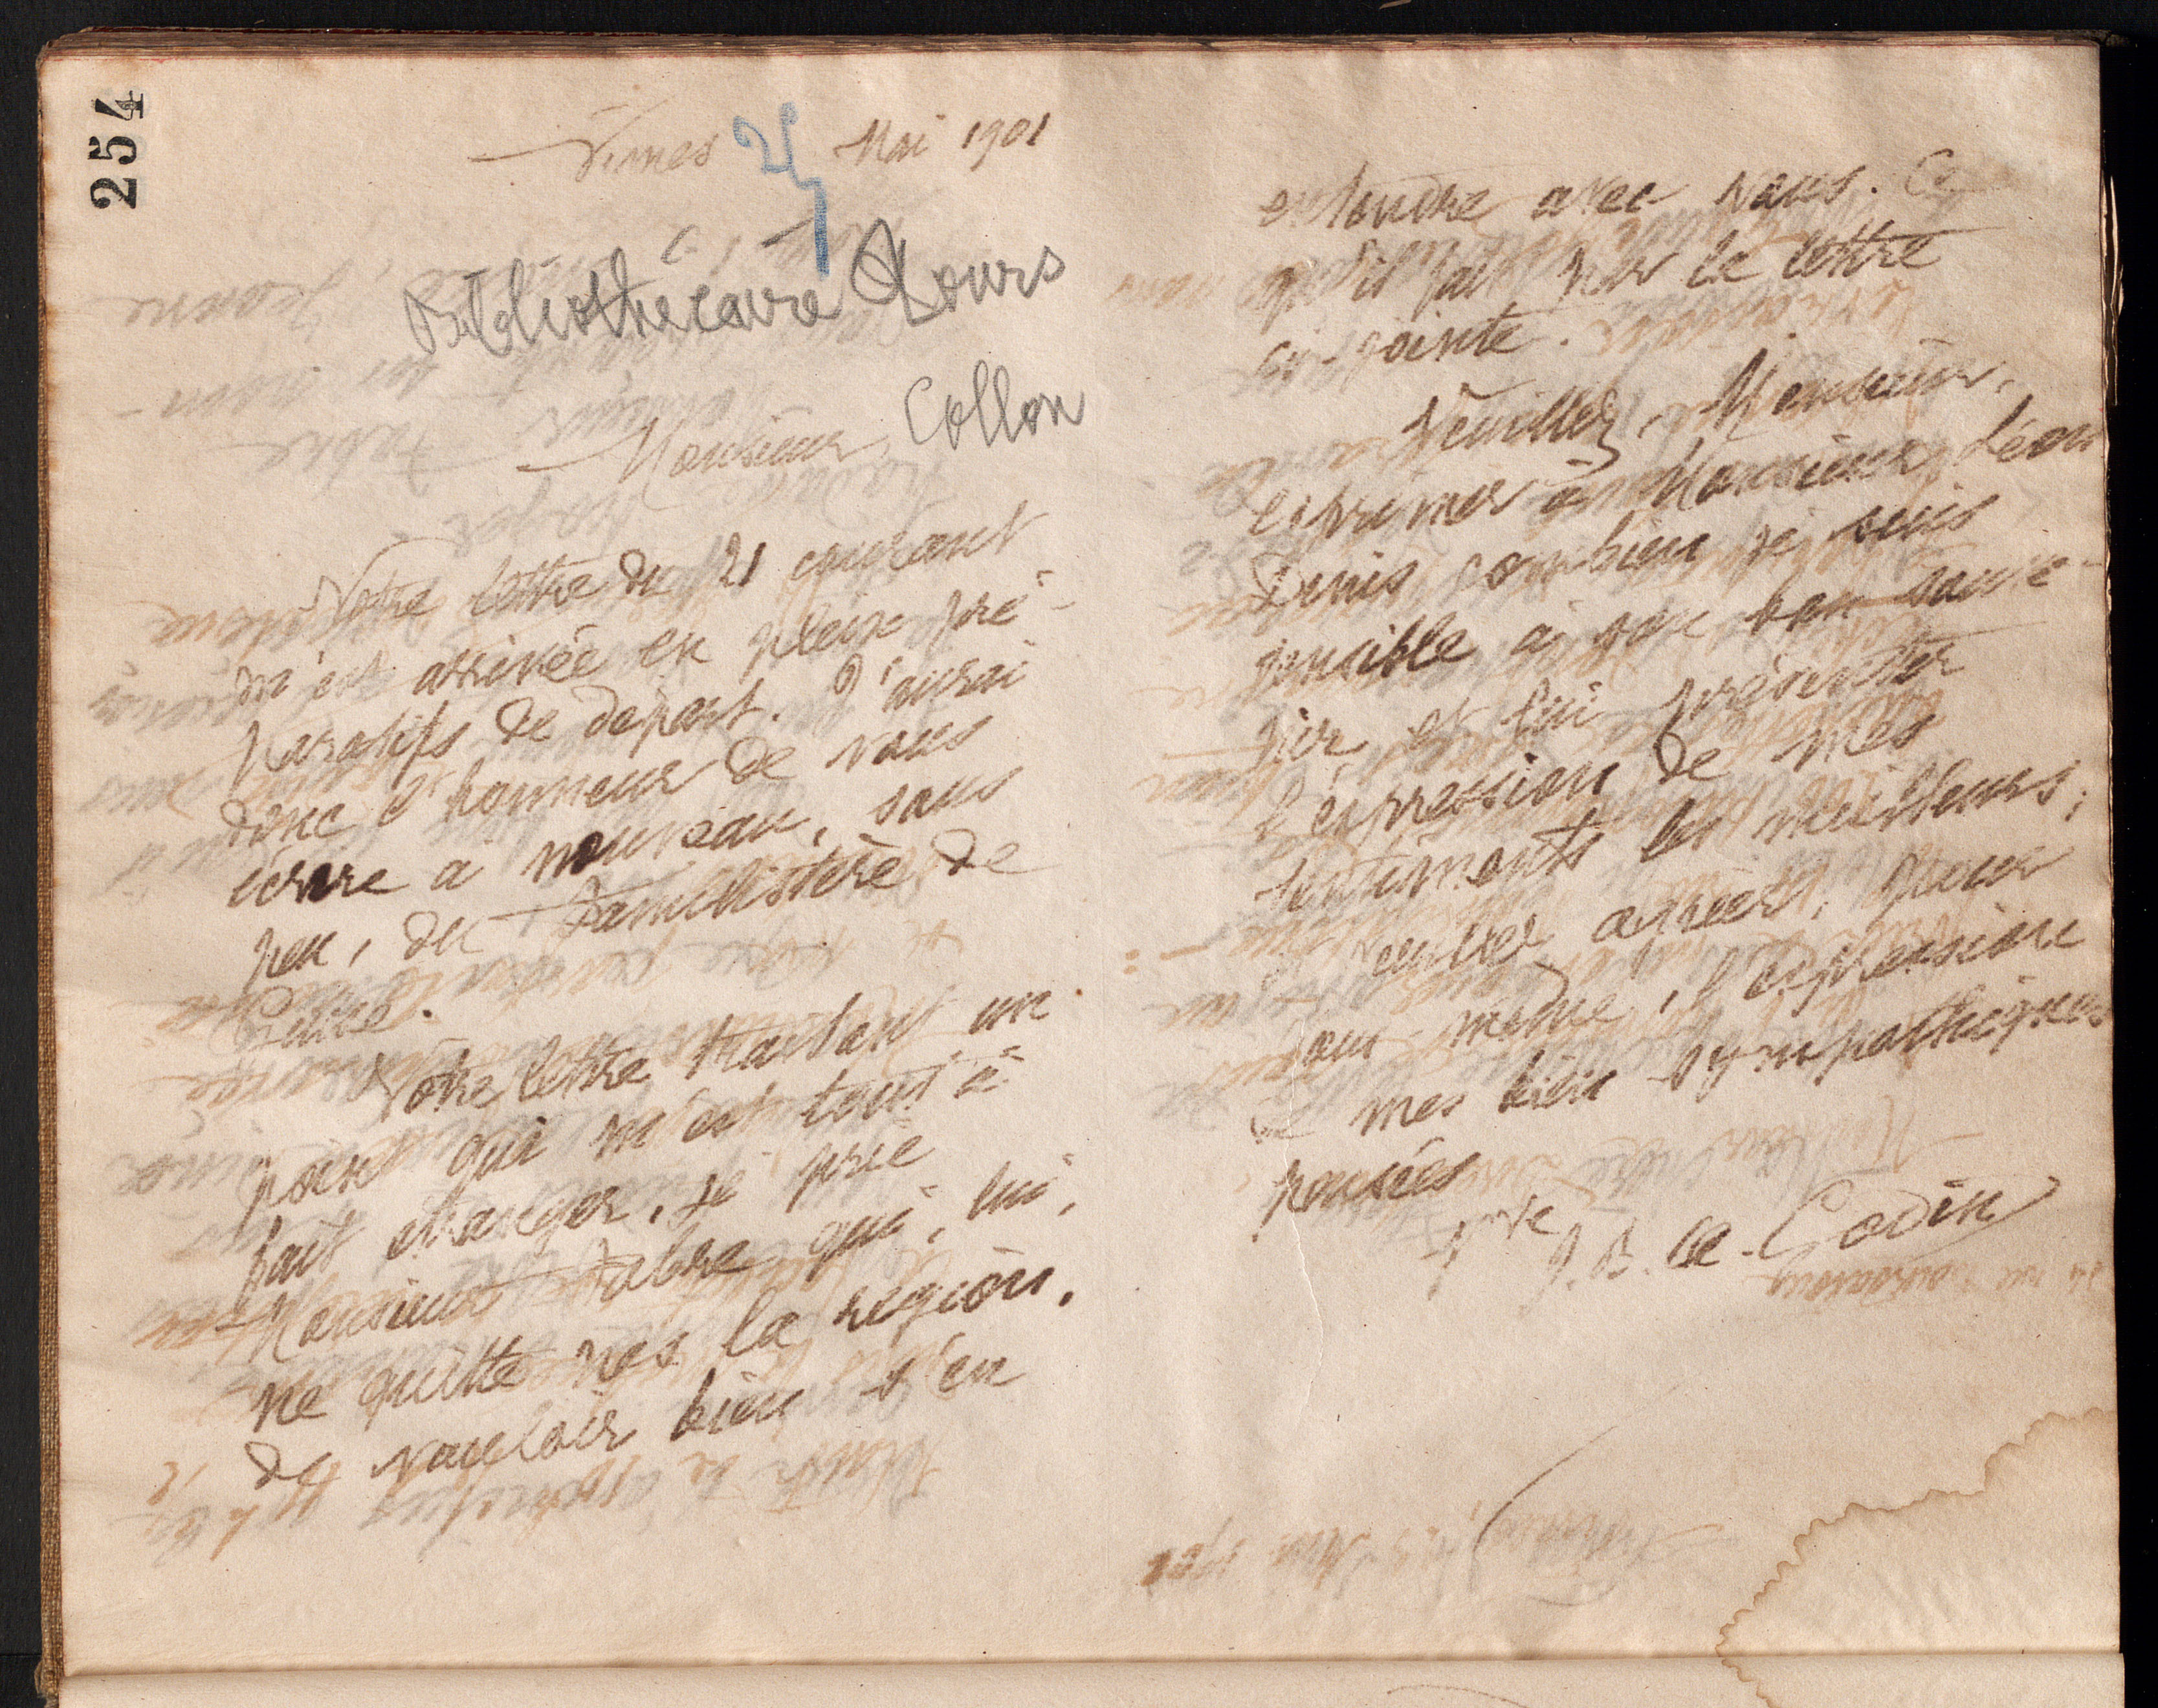 254
Nimes 25 Mai 1901
Bibliothecaire Tours
Collon
Monsieur,
Votre lettre du 21 courant
m'est arrivée en pleins pré-
paratifs de départ. J'aurai
donc l'honneur de vous
écrire à nouveau, sous
peu, du Familistère de
Guise.
Votre lettre traitant un
point qui m'est tout à
fait étranger, je prie
Monsieur Fabre qui, lui,
ne quitte pas la région,
de vouloir bien s'en
entendre avec vous. Ce
qu'il fait par la lettre
ci-jointe.
Veuillez, Monsieur,
exprimer à Monsieur Léon
Denis combien je suis
sensible à son bon souve-
nir et lui présenter
l'expression de mes
sentiments les meilleurs;
et veuillez agréer, pour
vous-même, l'expression
de mes bien sympathiques
pensées
Vve J. B. te Godin